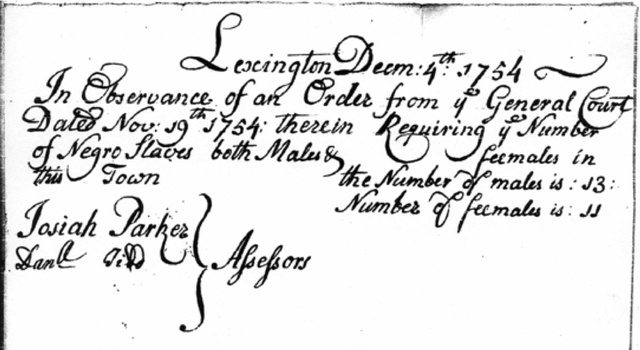 Lexington Decm: 4th 1754
In Observance of an Order from ye General Court
Dated Nov: 19th 1754: therein Requiring ye Number
of Negro Slaves both Males & feemales in
this Town the Number of males is: 13:
Number of feemales is: 11
Josiah Parker
Danll Tidd
Assessors